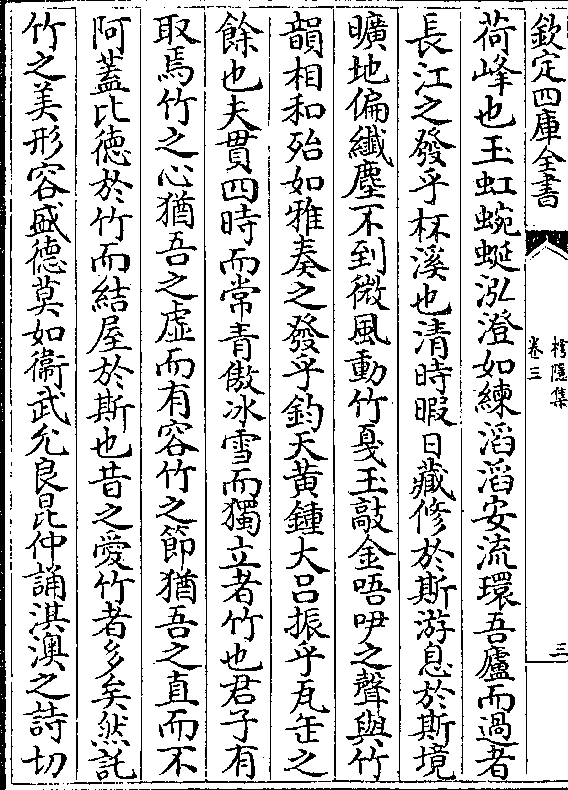 欽定四庫全書
樗隱集
卷三
三
荷峰也玉虹蜿蜒泓澄如練滔滔安流環吾廬而過者
長江之發乎杯溪也清時暇日藏修於斯游息於斯境
曠地偏纖塵不到微風動竹戛玉敲金唔咿之聲與竹
韻相和殆如雅奏之發乎鈞天黃鍾大吕振乎瓦缶之
餘也夫貫四時而常青傲冰雪而獨立者竹也君子有
取焉竹之心猶吾之虚而有容竹之節猶吾之直而不
阿葢比德於竹而結屋於斯也昔之愛竹者多矣然託
竹之美形容盛德莫如衞武允良昆仲誦淇澳之詩切